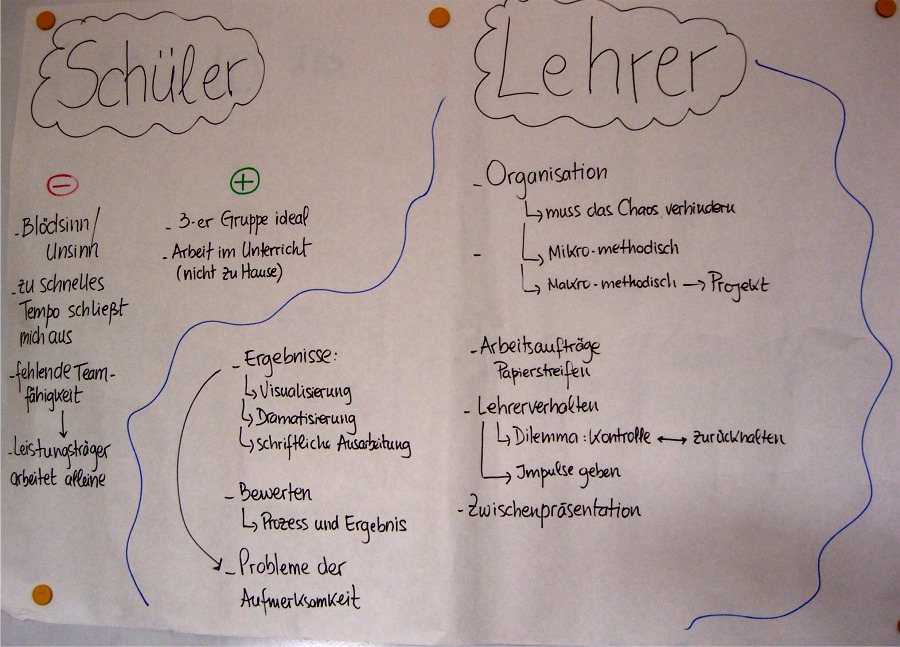 Schüler
⊖
- Blödsinn/
Unsinn
- zu schnelles
Tempo schließt
mich aus
- fehlende Team-
fähigkeit
↓
- Leistungsträger
arbeitet alleine
⊕
- 3-er Gruppe ideal
- Arbeit im Unterricht
(nicht zu Hause)
Lehrer
- Organisation
↳ muss das Chaos verhindern
-
↳ Mikro-methodisch
↳ Makro-methodisch → Projekt
- Arbeitsaufträge
Papierstreifen
- Lehrerverhalten
↳ Dilemma: Kontrolle ↔ zurückhalten
↳ Impulse geben
- Zwischenpräsentation
- Ergebnisse:
↳ Visualisierung
↳ Dramatisierung
↳ schriftliche Ausarbeitung
- Bewerten
↳ Prozess und Ergebnis
- Probleme der
Aufmerksamkeit